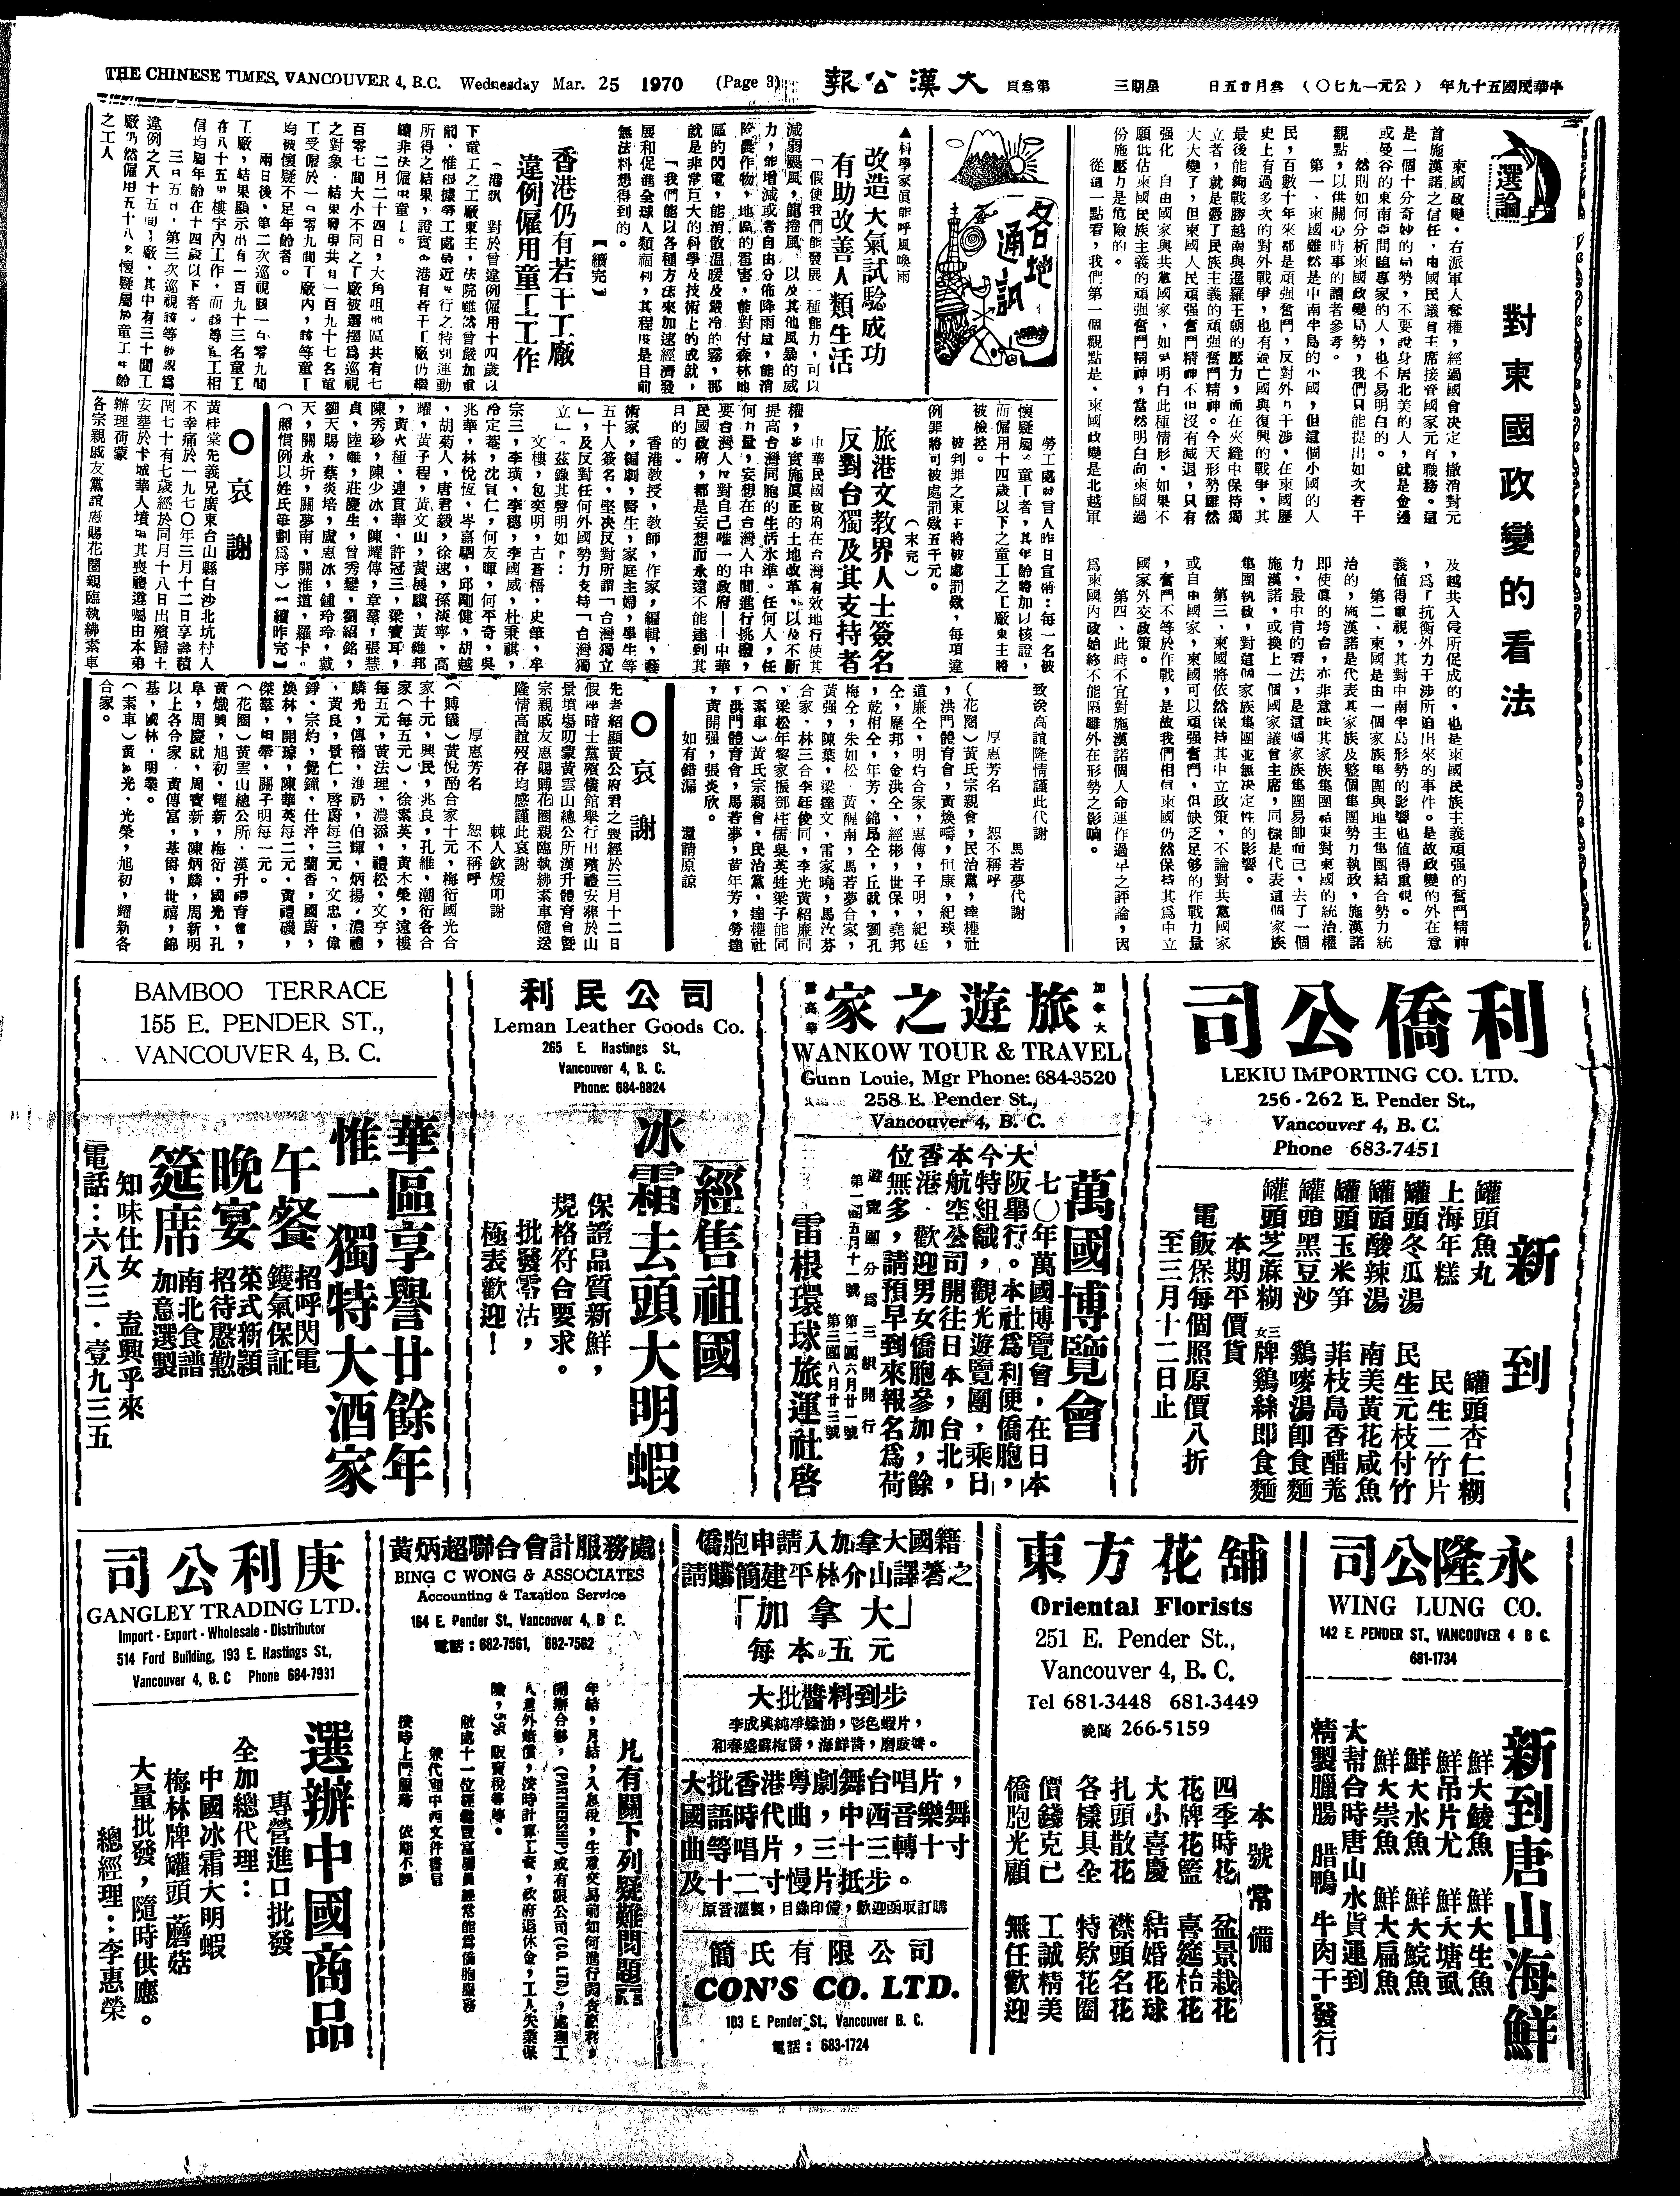 THE CHINESE TIMES, VANCOUVER 4, B.C. Wednesday Mar. 25 1970 (Page 3)
大漢公報
第叁頁
星期三
叁月廿五日
（公元一九七〇）
中華民國五十九年
選論
對柬國政變的看法
柬國政變，右派軍人奪權，經過國會決定，撤消對元
首施漢諾之信任，由國民議會主席接管國家元首職務。這
是一個十分奇妙的局勢，不要說身居北美的人，就是金邊
或曼谷的東南亞問題專家的人，也不易明白的。
然則如何分析柬國政變局勢，我們只能提出如次若干
觀點，以供關心時事的讀者參考。
第一、柬國雖然是中南半島的小國，但這個小國的人
民，百數十年來都是頑强奮鬥，反對外力干涉，在柬國歷
史上有過多次的對外戰爭，也有過亡國與復興的戰爭，其
最後能夠戰勝越南與暹羅王朝的壓力，而在夾縫中保持獨
立者，就是憑了民族主義的頑强奮鬥精神。今天形勢雖然
大大變了，但柬國人民頑强奮鬥精神不但沒有減退，只有
强化。自由國家與共黨國家，如能明白此種情形，如果不
願低估柬國民族主義的頑强奮鬥精神，當然明白向柬國過
份施壓力是危險的。
從這一點看，我們第一個觀點是，柬國政變是北越軍
及越共入侵所促成的，也是柬國民族主義頑强的奮鬥精神
，爲了抗衡外力干涉所迫出來的事件。是故政變的外在意
義値得重視，其對中南半島形勢的影響也値得重視。
第二、柬國是由一個家族集團與地主集團結合勢力統
治的，施漢諾是代表其家族及整個集團勢力執政，施漢諾
即使眞的垮台，亦非意味其家族集團結束對柬國的統治權
力，最中肯的看法，是這個家族集團易帥而已。去了一個
施漢諾，或換上一個國家議會主席，同樣是代表這個家族
集團執政，對這個家族集團並無決定性的影響。
第三、柬國將依然保持其中立政策，不論對共黨國家
或自由國家，柬國可以頑强奮鬥，但缺乏足够的作戰力量
，奮鬥不等於作戰，是故我們相信柬國仍然保持其爲中立
國家外交政策。
第四、此時不宜對施漢諾個人命運作過早之評論，因
爲柬國內政始終不能隔離外在形勢之影响。
各地通訊
▲科學家眞能呼風喚雨
改造大氣試騐成功
有助改善人類生活
「假使我們能發展一種能力，可以
減弱颶風，龍捲風，以及其他風暴的威
力，能增減或者自由分佈降雨量，能消
除農作物，地區的雹害，能對付森林地
區的閃電，能消散溫暖及嚴冷的霧，那
就是非常巨大的科學及技術上的成就，
「我們能以各種方法來加速經濟發
展和促進全球人類福利，其程度是目前
無法料想得到的。
【續完】
香港仍有若干工廠
違例僱用童工工作
（港訊）對於曾違例僱用十四歲以
下童工之工廠東主，法院雖然曾嚴加重
罰，惟根據勞工處最近進行之特別運動
所得之結果，證實香港有若干工廠仍繼
續非法僱用童工。
二月二十四日，大角咀地區共有七
百零七間大小不同之工廠被選擇爲巡視
之對象，結果發現共有一百九十七名童
工受僱於一百零九間工廠內，該等童工
均被懷疑不足年齡者。
兩日後，第二次巡視該一百零九間
工廠，結果顯示出有一百九十三名童工
在八十五座樓宇內工作，而該等童工相
信均屬年齡在十四歲以下者。
三月五日，第三次巡視該等被認爲
違例之八十五間工廠，其中有三十間工
廠仍然僱用五十八名懷疑屬於童工年齡
之工人
勞工處發言人昨日宣稱：每一名被
懷疑屬於童工者，其年齡將加以核證，
而僱用十四歲以下之童工之工廠東主將
被檢控。
被判罪之東主將被處罰欵，每項違
例罪將可被處罰欵五千元。
（末完）
旅港文教界人士簽名
反對台獨及其支持者
中華民國政府在台灣有效地行使其
權，步實施眞正的土地改革，以及不斷
提高台灣同胞的生活水準。任何人，任
何力量，妄想在台灣人中間進行挑撥，
要台灣人反對自己唯一的政府——中華
民國政府，都是妄想而永遠不能達到其
目的的。
香港教授，教師，作家，編輯，藝
術家，編劇，醫生，家庭主婦，學生等
五十人簽名，堅决反對所謂「台灣獨立
」，及反對任何外國勢力支持「台灣獨
立」。茲錄其聲明如下：
文樓，包奕明，古蒼梧，史肇，牟
宗三，李璜，李穗，李國威，杜秉祺，
冷定菴，沈宣仁，何友暉，何平奇，吳
兆華，林悅恆，岑嘉駟，邱剛健，胡越
，胡菊人，唐君毅，徐速，孫淡寧，高
耀，黃子程，黃文山，黃展驥，黃維邦
，黃火種，連貫華，許冠三，梁寶耳，
陳秀珍，陳少冰，陳耀傳，章羣，張慧
貞，陸離，莊慶生，曾秀變，劉紹銘，
劉天賜，蔡炎培，盧惠冰，鍾玲玲，戴
天，關永圻，關夢南，關淮道，羅卡。
（照慣例以姓氏筆劃爲序）【續昨完】
哀謝
黃植棠先義兄廣東台山縣白沙北坑村人
不幸痛於一九七〇年三月十二日享壽積
閏七十有七歲經於同月十八日出殯歸土
安塟於卡城華人墳塲其喪禮遵囑由本弟
辦理荷蒙
各宗親戚友黨誼惠賜花圈親臨執紼素車
致深高誼隆情謹此代謝
馬若夢代謝
厚惠芳名 恕不稱呼
（花圈）黃氏宗親會，民治黨，達權社
，洪門體育會，黃煥嘯，恒康，紀琰，
道廉仝，明灼合家，惠傳，子明，紀廷
仝，歷邦，金洪仝，經彬，世保，堯邦
，乾相仝，年芳，錦昂仝，丘就，劉孔
梅仝，朱如松，黃醒南，馬若夢合家，
黃强，陳葉，梁達文，雷家曉，馬汝芬
合家，林三合李廷俊同，李光黃紹廉同
，梁松年黎家振鄧柱儒吳英姓梁子能同
（素車）黃氏宗親會，民治黨，達權社
，洪門體育會，馬若夢，黃年芳，勞達
，黃開强，張炎欣。
如有錯漏 還請原諒
哀謝
先考紹顯黃公府君之喪經於三月十二日
假座暗士黨殯儀館舉行出殯禮安葬於山
景墳塲叨蒙黃雲山總公所漢升體育會曁
宗親戚友惠賜賻花圈親臨執紼素車隨送
隆情高誼歿存均感謹此哀謝
棘人欽煖叩謝
厚惠芳名 恕不稱呼
（賻儀）黃悅酌合家十元，梅衍國光合
家十元，興民，兆良，孔維，潮衍各合
家（每五元），徐素英，黃木榮，遠樓
每五元，黃法理，濃添，禮松，文亨，
麟光，傳稽，進礽，伯輝，炳揚，濃禮
，黃良，景仁，啓蔚每三元。文忠，偉
錚，宗灼，覺鐘，仕泮，蘭香，國蔚，
煥林，開琼，陳華英每二元，黃禮磯，
傑羣，田舉，關子明每一元。
（花圈）黃雲山總公所，漢升體育會，
黃熾興，旭初，耀新，梅衍，國光，孔
阜，周慶就，周寶新，陳炳麟，周新明
以上各合家，黃傳富，基爵，世禧，錦
基，國林，明業。
（素車）黃光光，光榮，旭初，耀新各
合家。
利僑公司
LEKIU IMPORTING CO. LTD.
256-262 E. Pender St.,
Vancouver 4, B. C.
Phone 683-7451
新到
罐頭魚丸 罐頭杏仁糊
上海年糕 民生二竹片
罐頭冬瓜湯 民生元枝付竹
罐頭酸辣湯 南美黃花咸魚
罐頭玉米笋 菲枝島香醋羗
罐頭黑豆沙 鷄嘜湯卽食麵
罐頭芝蔴糊 三女牌鷄絲即食麵
本期平價貨
電飯保每個照原價八折
至三月十二日止
加拿大
旅遊之家
雲高華
WANKOW TOUR & TRAVEL
Gunn Louie, Mgr Phone: 684-3520
258 E. Pender St.,
Vancouver 4, B. C.
萬國博覽會
七〇年萬國博覽會，在日本
大阪舉行。本社爲利便僑胞，
今特組織，觀光遊覽團，乘日
本航空公司開往日本，台北，
香港。歡迎男女僑胞參加，餘
位無多，請預早到來報名爲荷
遊覽團分爲三組開行
第一團五月十一號 第二團六月廿一號
第三團八月廿三號
雷根環球旅運社啓
利民公司
Leman Leather Goods Co.
265 E. Hastings St,
Vancouver 4, B. C.
Phone: 684-8824
經售祖國
冰霜去頭大明蝦
保證品質新鮮，
規格符合要求。
批發零沽，
極表歡迎！
BAMBOO TERRACE
155 E. PENDER ST.,
VANCOUVER 4, B. C.
華區享譽廿餘年
惟一獨特大酒家
午餐 招呼閃電 鑊氣保証
晚宴 菜式新頴 招待慇懃
筵席 南北食譜 加意選製
知味仕女 盍興乎來
電話：六八三·壹九三五
永隆公司
WING LUNG CO.
142 E. PENDER ST., VANCOUVER 4 B C.
681-1734
新到唐山海鮮
鮮大鯪魚 鮮大生魚
鮮吊片尤 鮮大塘虱
鮮大水魚 鮮大鯇魚
鮮大崇魚 鮮大扁魚
大幫合時唐山水貨運到
精製臘腸 腊鴨 牛肉干 發行
東方花舖
Oriental Florists
251 E. Pender St.,
Vancouver 4, B. C.
Tel 681-3448 681-3449
晚間 266-5159
本號常備
四季時花 盆景栽花
花牌花籃 喜筵枱花
大小喜慶 結婚花球
扎頭散花 襟頭名花
各樣具全 特欵花圈
價錢克己 工誠精美
僑胞光顧 無任歡迎
僑胞申請入加拿大國籍
請購簡建平林介山譯著之
「加拿大」
每本五元
大批醬料到步
李成興純净蠔油，彩色蝦片，
和春盛蘇梅醬，海鮮醬，磨豉醬。
大批香港粤劇舞台唱片，
國語時代曲，中西音樂舞
曲等唱片，三十三轉十寸
及十二寸慢片抵步。
原音灌製，目錄印備，歡迎函取訂購
簡氏有限公司
CON'S CO. LTD.
103 E. Pender St., Vancouver B. C.
電話：683-1724
黃炳超聯合會計服務處
BING C WONG & ASSOCIATES
Accounting & Taxation Service
164 E. Pender St., Vancouver 4, B C.
電話：682-7561, 682-7562
凡有關下列疑難問題
年結，月結，入息稅，生意交易前如何進行調查底細，
開辦合夥，(PARTNERSHIP)或有限公司(CO. LTD.)，處理工
人意外賠償，按時計算工資，政府退休金，工人失業保
險，5% 販賣稅等等。
敝處十一位經驗豐富屬員經常能爲僑胞服務
兼代理中西文件書信
按時上門服務 依期不悞
庚利公司
GANGLEY TRADING LTD.
Import - Export - Wholesale - Distributor
514 Ford Building, 193 E. Hastings St.,
Vancouver 4, B. C Phone 684-7931
選辦中國商品
專營進口批發
全加總代理：
中國冰霜大明蝦
梅林牌罐頭蘑菇
大量批發，隨時供應。
總經理：李惠榮